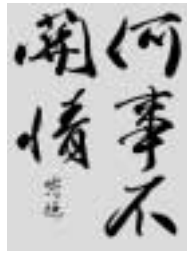 何事不
開情